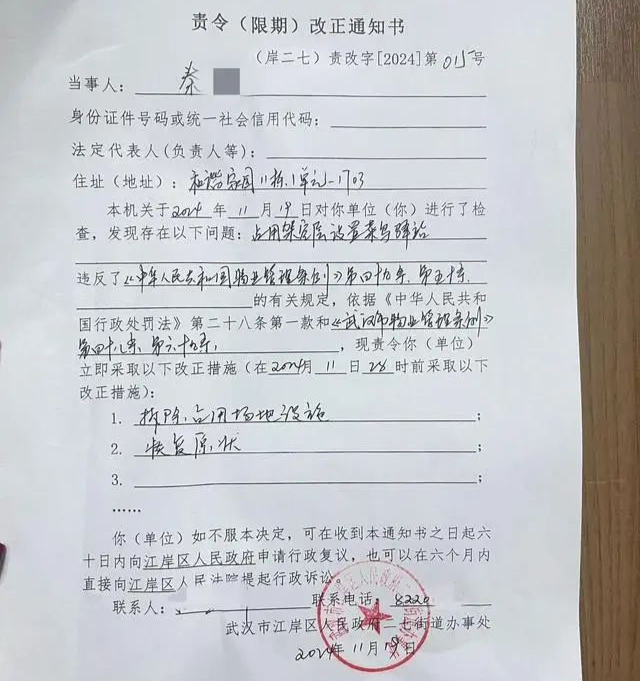 责令（限期）改正通知书
（岸二七）责改字[2024]第015号
当事人：秦
身份证件号码或统一社会信用代码：
法定代表人(负责人等)：
住址（地址）：和谐家园11栋1单元-1703
本机关于2024年11月19日对你单位（你）进行了检
查，发现存在以下问题：占用架空层设置菜鸟驿站
违反了《中华人民共和国物业管理条例》第四十九条、第五十条、
的有关规定，依据《中华人民共和
国行政处罚法》第二十八条第一款和《武汉市物业管理条例》
第四十八条、第六十九条，现责令你（单位）
立即采取以下改正措施（在2024年11日28时前采取以下
改正措施）：
1. 拆除占用场地设施；
2. 恢复原状；
3. ；
……
你（单位）如不服本决定，可在收到本通知书之日起六
十日内向江岸区人民政府申请行政复议，也可以在六个月内
直接向江岸区人民法院提起行政诉讼。
联系人： 联系电话：8220
武汉市江岸区人民政府二七街道办事处
2024年11月19日